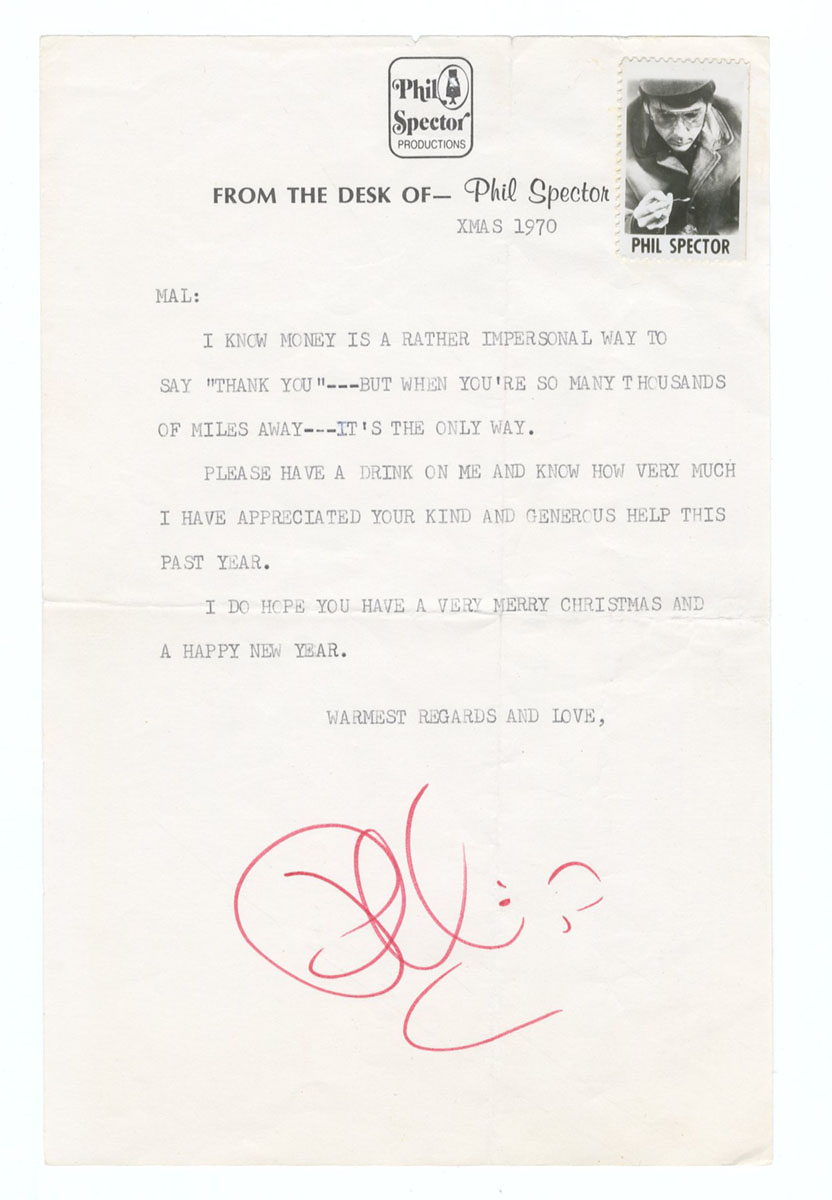 Phil
Spector
PRODUCTIONS
FROM THE DESK OF— Phil Spector
XMAS 1970
PHIL SPECTOR
MAL:
I KNOW MONEY IS A RATHER IMPERSONAL WAY TO
SAY "THANK YOU"---BUT WHEN YOU'RE SO MANY THOUSANDS
OF MILES AWAY---IT'S THE ONLY WAY.
PLEASE HAVE A DRINK ON ME AND KNOW HOW VERY MUCH
I HAVE APPRECIATED YOUR KIND AND GENEROUS HELP THIS
PAST YEAR.
I DO HOPE YOU HAVE A VERY MERRY CHRISTMAS AND
A HAPPY NEW YEAR.
WARMEST REGARDS AND LOVE,
Phil